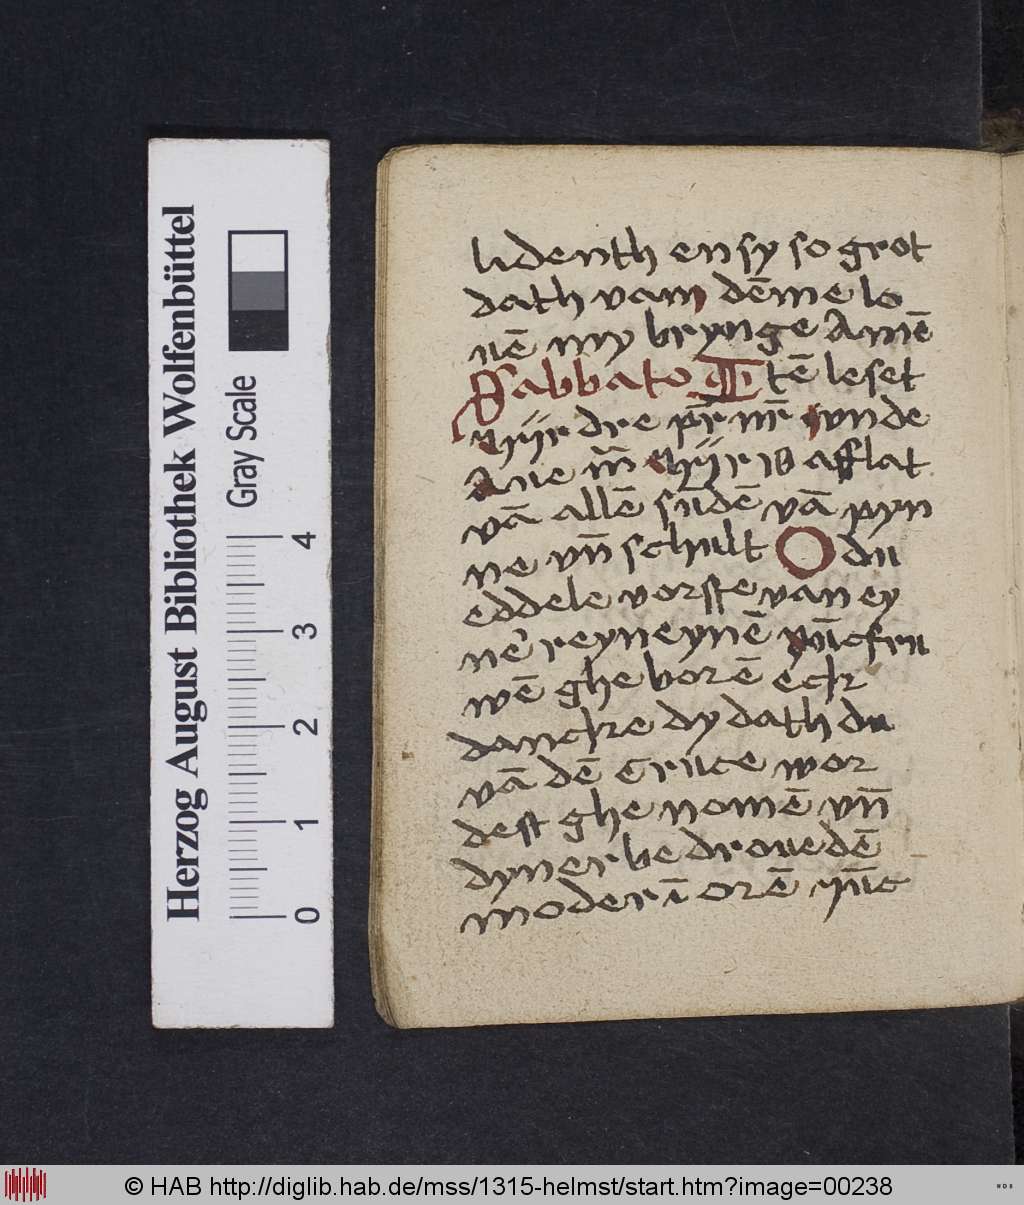 lidenth en sy so grot
dath vam dēme lo
nē my brynge Amē
Sabbato Itē leset
hyr dre pr̄ nr̄ vnde
Aue m̄ hyir is afflat
vā allē sūdē vā pyn
ne vn̄ schult O du
eddele vorste van ey
ner reyneynē iūcfru
wē ghe borē eck
dancke dy dath du
vā dē cruce wor
dest ghe nomē vn̄
dyner be droue dē
moder ī orē
Herzog August Bibliothek Wolfenbüttel
Gray Scale
0 1 2 3 4
© HAB http://diglib.hab.de/mss/1315-helmst/start.htm?image=00238